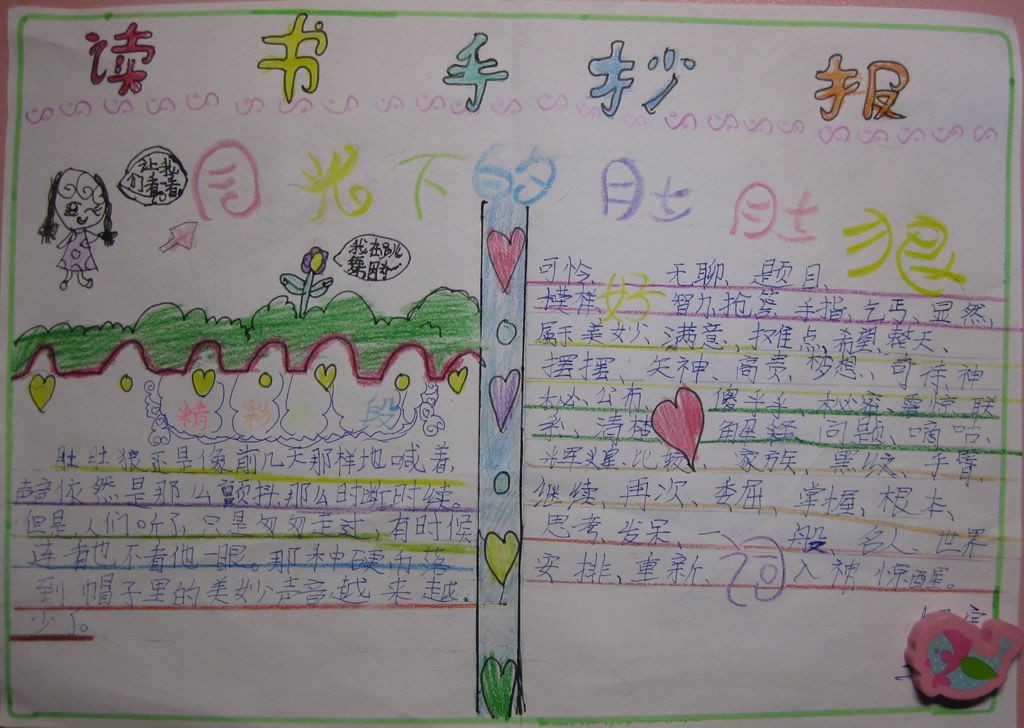 读书手抄报
月光下的肚肚狼
让我们看看
我在跳舞图
精彩片段
肚肚狼还是像前几天那样地喊着,
声音依然是那么颤抖那么时断时续。
但是人们听了,只是匆匆走过,有时候
连看也不看他一眼。那种硬币落
到帽子里的美妙声音越来越
少了。
好词
可怜、无聊、题目、
模样、智力抢答、手指、乞丐、显然、
属于、美妙、满意、难点、希望、整天、
摆摆、失神、商卖、梦想、可待、神
秘、公布、傻乎乎、秘密、震惊、联
系、清楚、解释、问题、嘀咕、
光军义星、比较、家族、黑纹、手臂、
继续、再次、委屈、掌握、根本、
思考、发呆、一般、名人、世界
安排、重新、入神、惊醒。